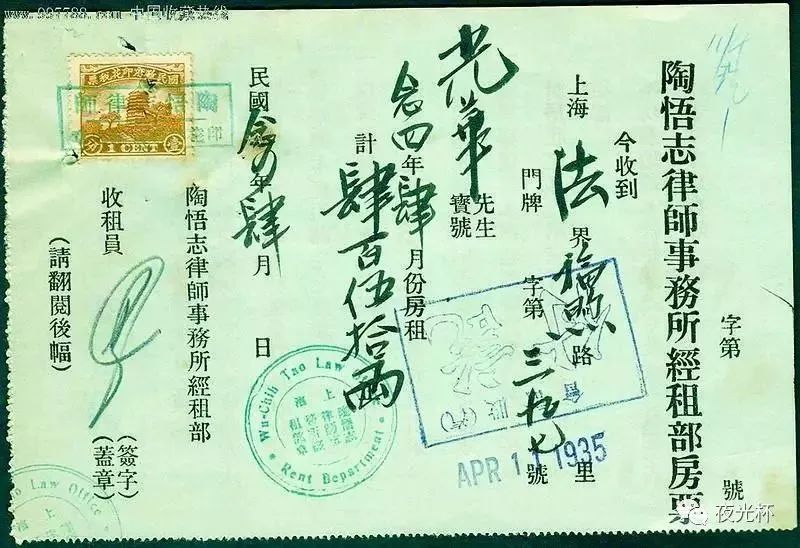 陶悟志律師事務所經租部房票
字第
號
今收到
上海法界福煦路
里
門牌
字第三九七號
光華先生
寶號
念四年肆月份房租
計肆百伍拾兩
民國念四年肆月
日
陶悟志律師事務所經租部
收租員
(簽字)
(蓋章)
(請翻閱後幅)
國民政府印花稅票
壹
1 CENT
分
Wu-Chih Tao Law
Rent Department
上海
APR 11 1935
Tao Law Office
上
www.997788.com 中国收藏热线
夜光杯